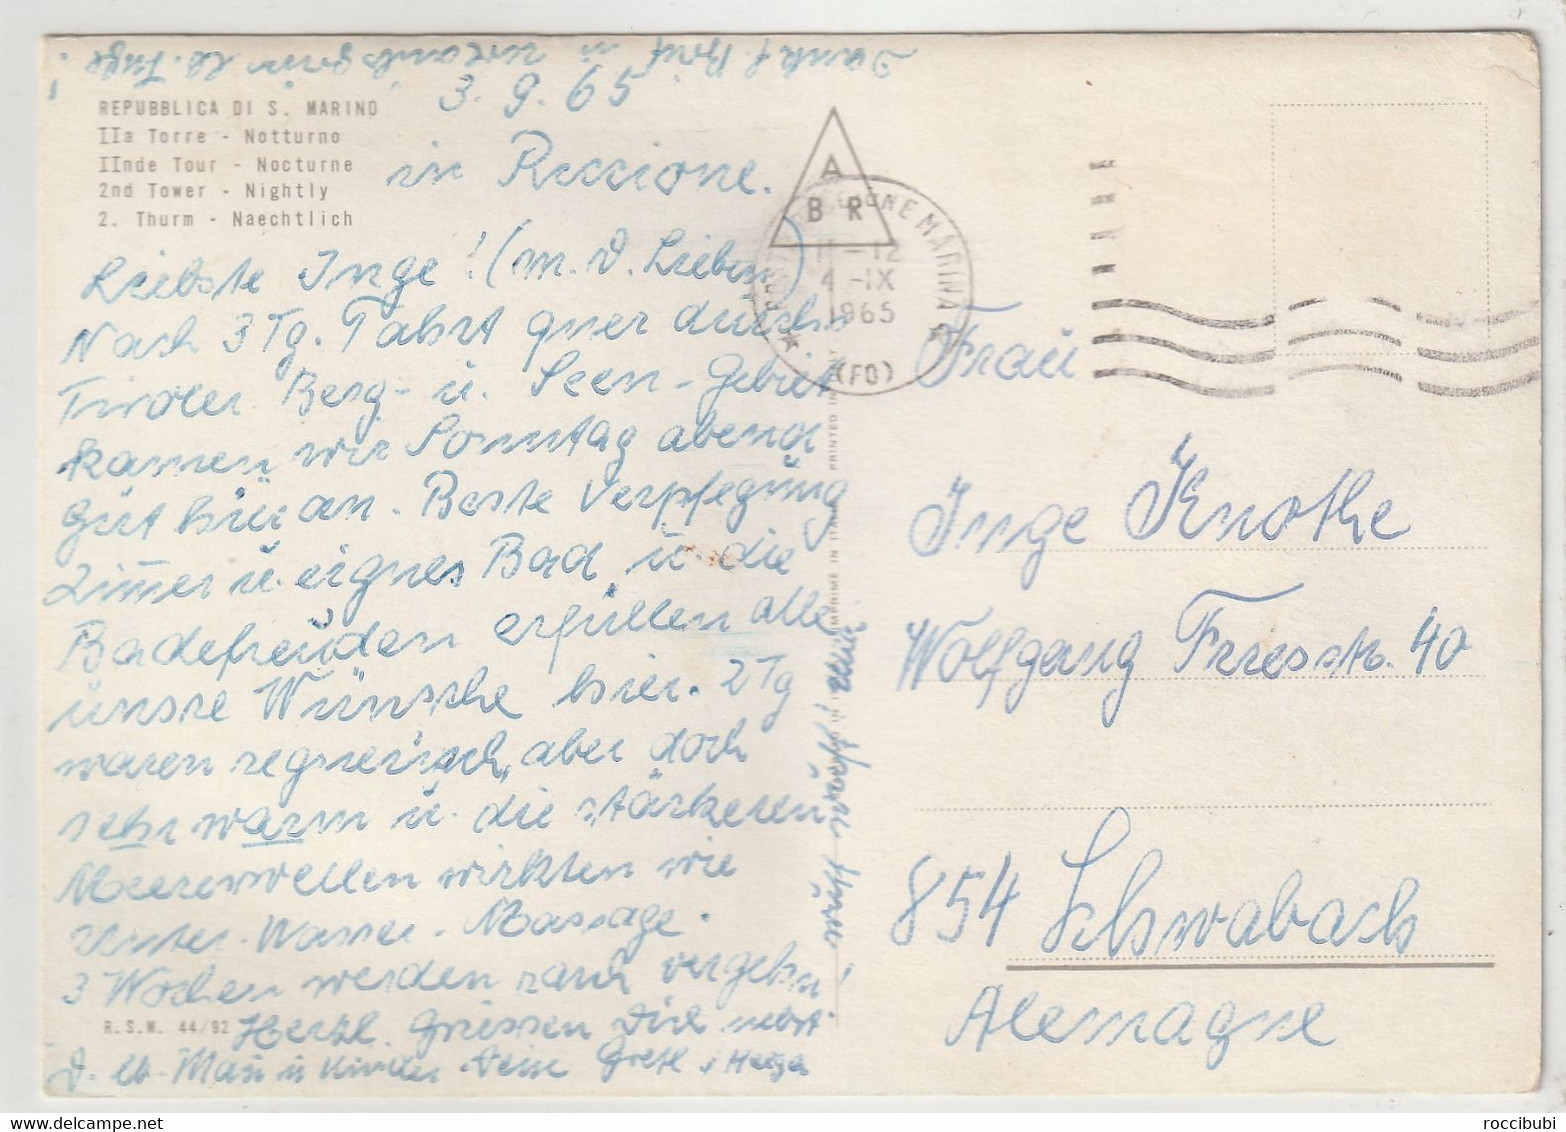 Dank f. Brief u.
REPUBBLICA DI S. MARINO
IIa Torre - Notturno
IInde Tour - Nocturne
2nd Tower - Nightly
2. Thurm - Naechtlich
3. 9. 65
in Riccione.
Liebste Inge! (m. D. Lieben)
Nach 3 Tg. Fahrt quer durchs
Tiroler Berg- u. Seen-Gebiet
kamen wir Sonntag abend
gut hier an. Beste Verpflegung
Zimmer u. eignes Bad u. die
Badefreuden erfüllen alle
unsre Wünsche hier. 2 Tg
waren regnerisch, aber doch
sehr warm u. die stärkeren
Meereswellen wirkten wie
Unter-Wasser-Massage.
3 Wochen werden rasch vergehn!
Herzl. Grüssen Dich nebst
D. lb. Mann u Kinder Deine Gretl u Helga
R.S.M. 44/92
A
B R
RICCIONE MARINA
11-12
4-IX
1965
(FO)
PRINTED IN ITALY
IMPRIME IN ITALIE
Frau
Inge Knothe
Wolfgang Friesstr. 40
854 Schwabach
Alemagne
roccibubi